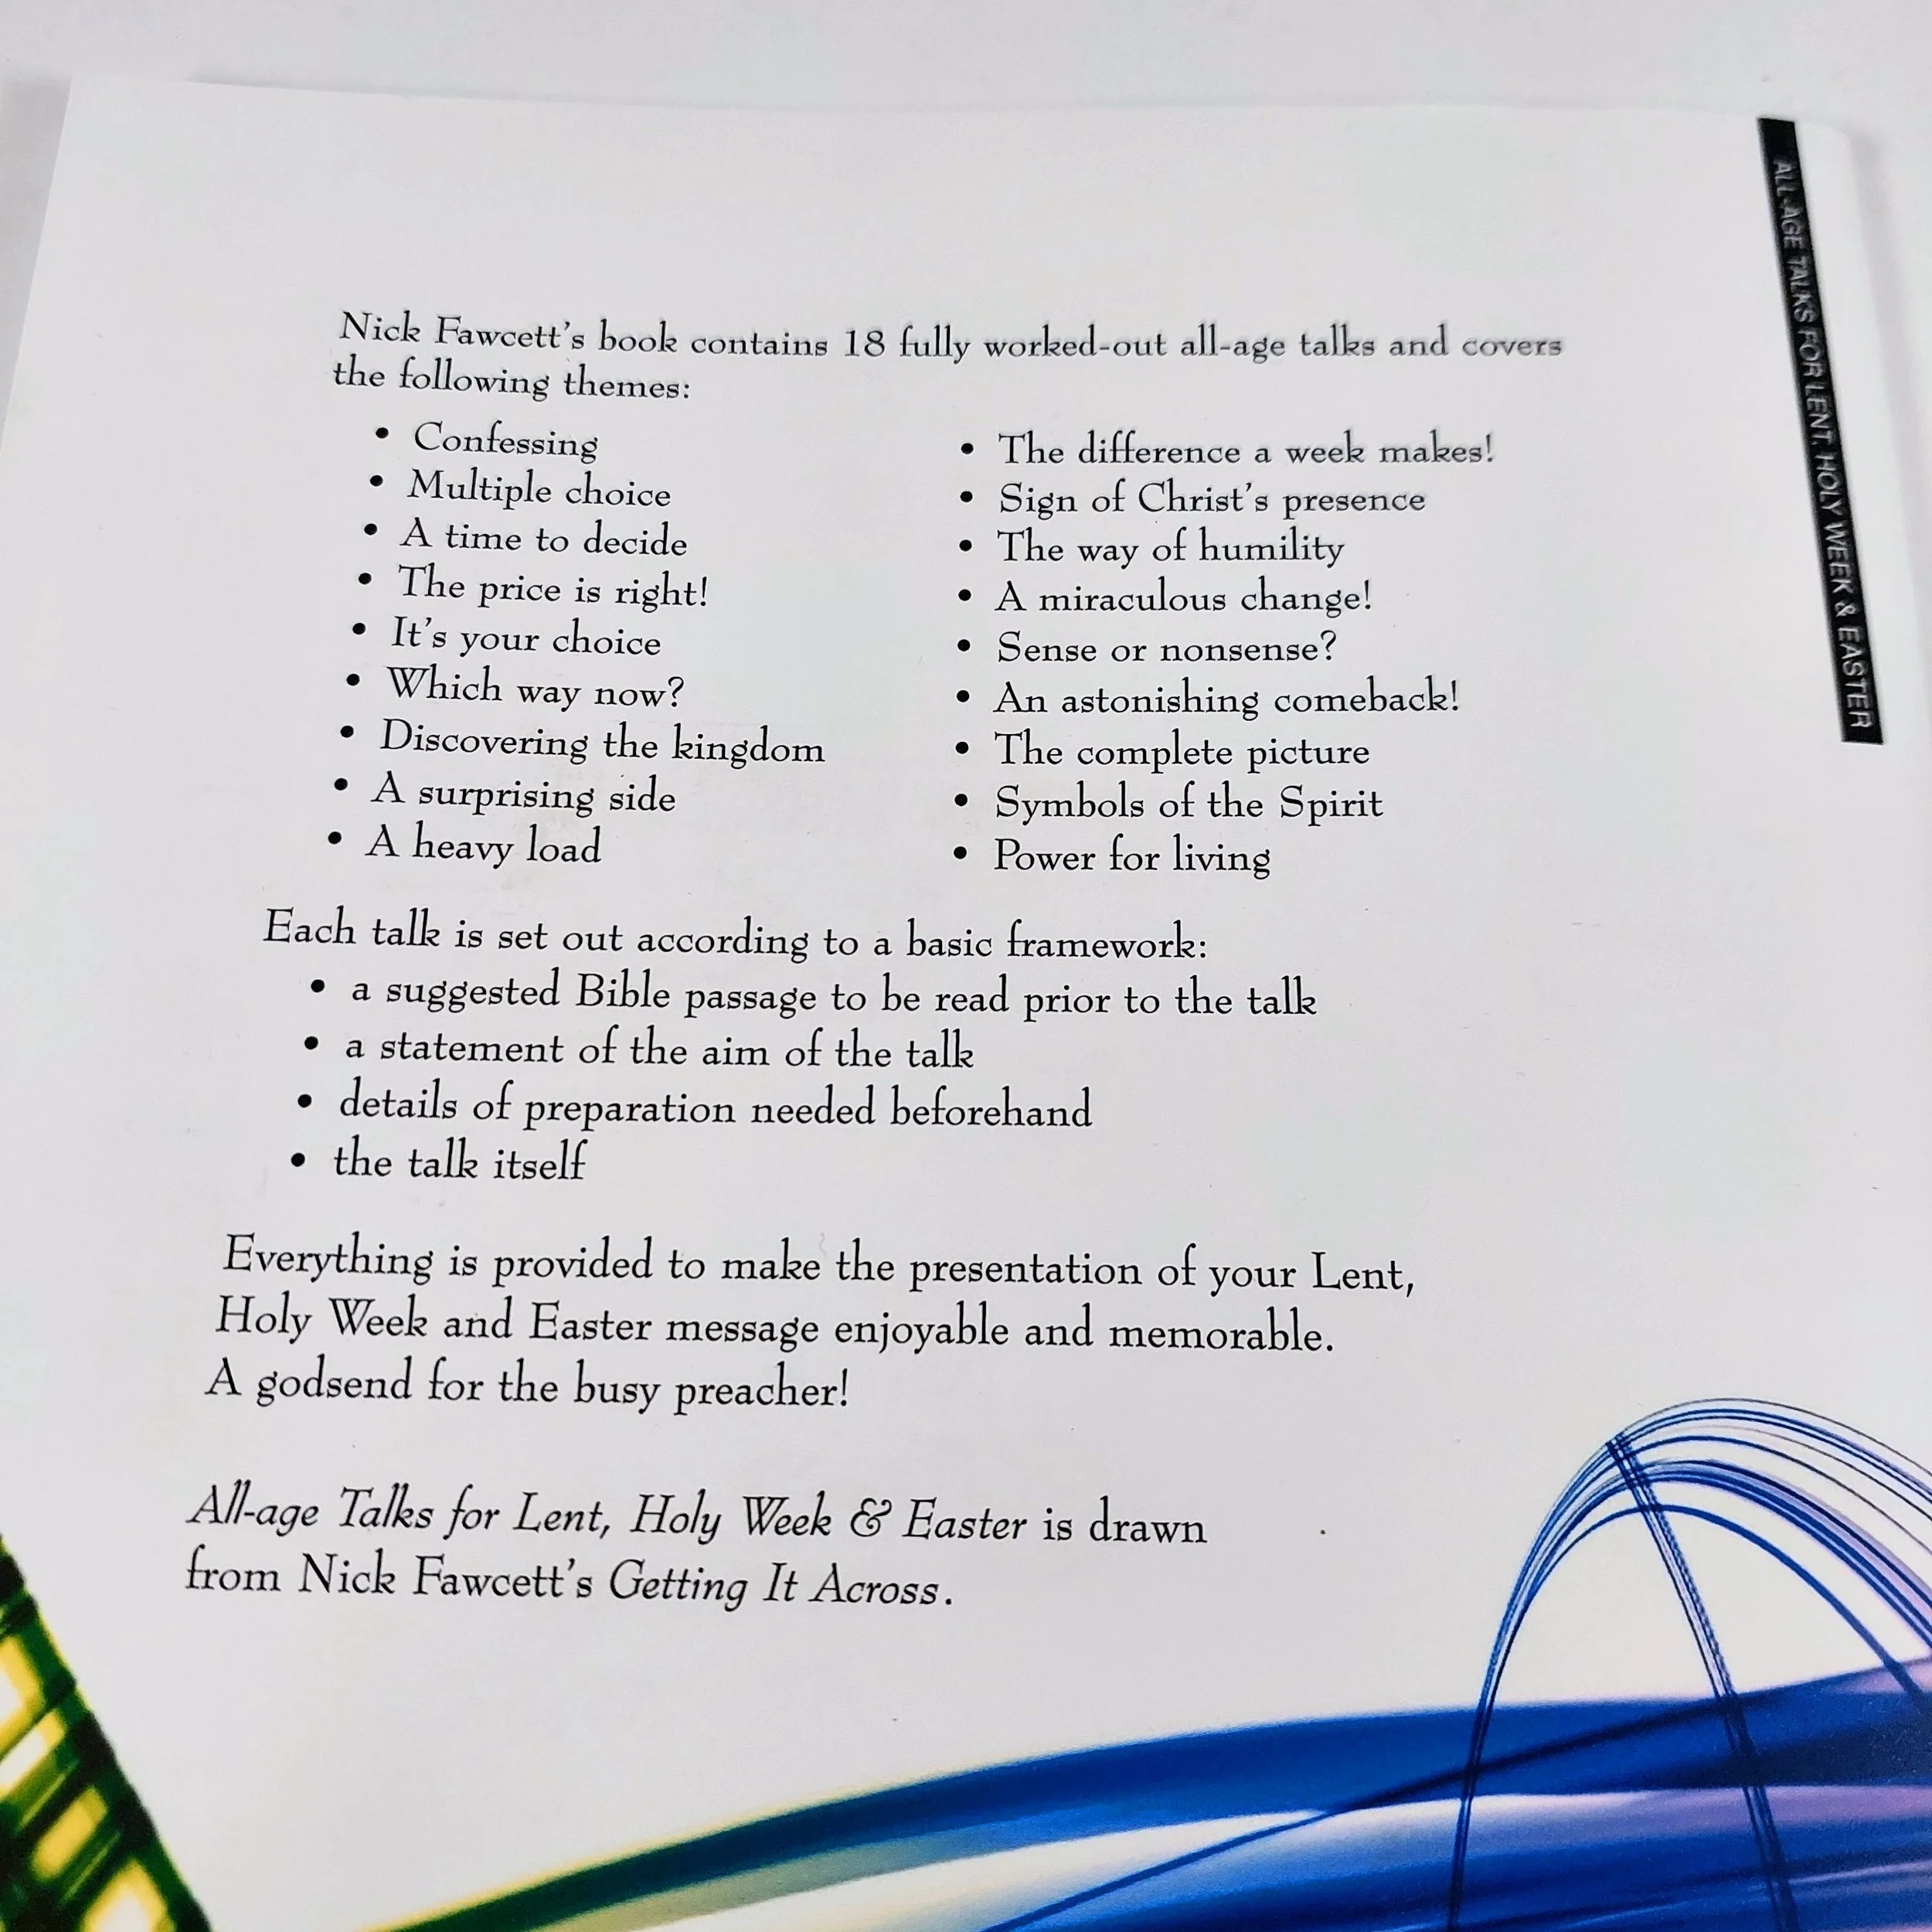 Nick Fawcett's book contains 18 fully worked-out all-age talks and covers
the following themes:
• Confessing
• Multiple choice
• A time to decide
• The price is right!
• It's your choice
• Which way now?
• Discovering the kingdom
• A surprising side
• A heavy load
• The difference a week makes!
• Sign of Christ's presence
• The way of humility
• A miraculous change!
• Sense or nonsense?
• An astonishing comeback!
• The complete picture
• Symbols of the Spirit
• Power for living
Each talk is set out according to a basic framework:
• a suggested Bible passage to be read prior to the talk
• a statement of the aim of the talk
• details of preparation needed beforehand
• the talk itself
Everything is provided to make the presentation of your Lent,
Holy Week and Easter message enjoyable and memorable.
A godsend for the busy preacher!
All-age Talks for Lent, Holy Week & Easter is drawn
from Nick Fawcett's Getting It Across.
ALL-AGE TALKS FOR LENT, HOLY WEEK & EASTER